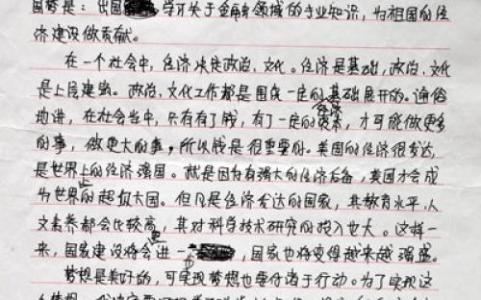 国梦是：出国学习关于金融领域的专业知识，为祖国的经
济建设做贡献。
在一个社会中，经济决定政治、文化。经济是基础，政治、文化
是上层建筑。政治、文化工作都是围绕一定的基础展开的。通俗
地讲，在社会当中，只有有了钱，有了一定的资本，才可能做更多
的事，做更大的事，所以钱是很重要的。美国的经济很发达，
是世界上的经济强国。就是因为有强大的经济后备，美国才会成
为世界的超级大国。但凡是经济发达的国家，其教育水平、人
文素养都会比较高，其对科学技术研究的投入也大。这样一
来，国家建设将会进一，国家也将变得越来越强盛。
梦想是美好的，可实现梦想也要付诸于行动。为了实现这